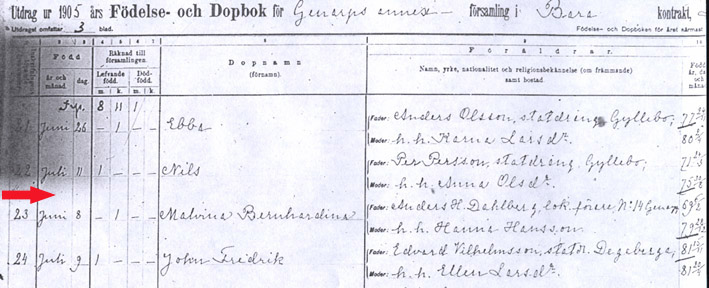 Utdrag ur 1905 års Födelse- och Dopbok för Genarps annex församling i Bara kontrakt,
Utdraget omfattar 3 blad.
Födelse- och Dopboken för året närmast
Född
Räknad till församlingen.
Dopnamn
(förnamn).
Föräldrar.
Namn, yrke, nationalitet och religionsbekännelse (om främmande)
samt bostad
Född
år, da
år och månad
dag.
Lefvande född.
Död-född.
m. k. m. k.
8 11 1
21 Juni 26 – 1 – – Ebba
Fader: Anders Olsson, statdräng, Gyllebo, 77
Moder: h. h. Karna Larsdr. 80
22 Juli 11 1 – – – Nils
Fader: Per Persson, statdräng, Gyllebo, 71
Moder: h. h. Anna Olsdr. 75
23 Juni 8 – 1 – – Malvina Bernhardina
Fader: Anders H. Dahlberg, lok. förere, No 14 Genarp 69
Moder: h. h. Hanna Hansson 79
24 Juli 9 1 – – – John Fredrik
Fader: Edvard Vilhelmsson, statdr. Degeberga, 81
Moder: h. h. Ellen Larsdr.